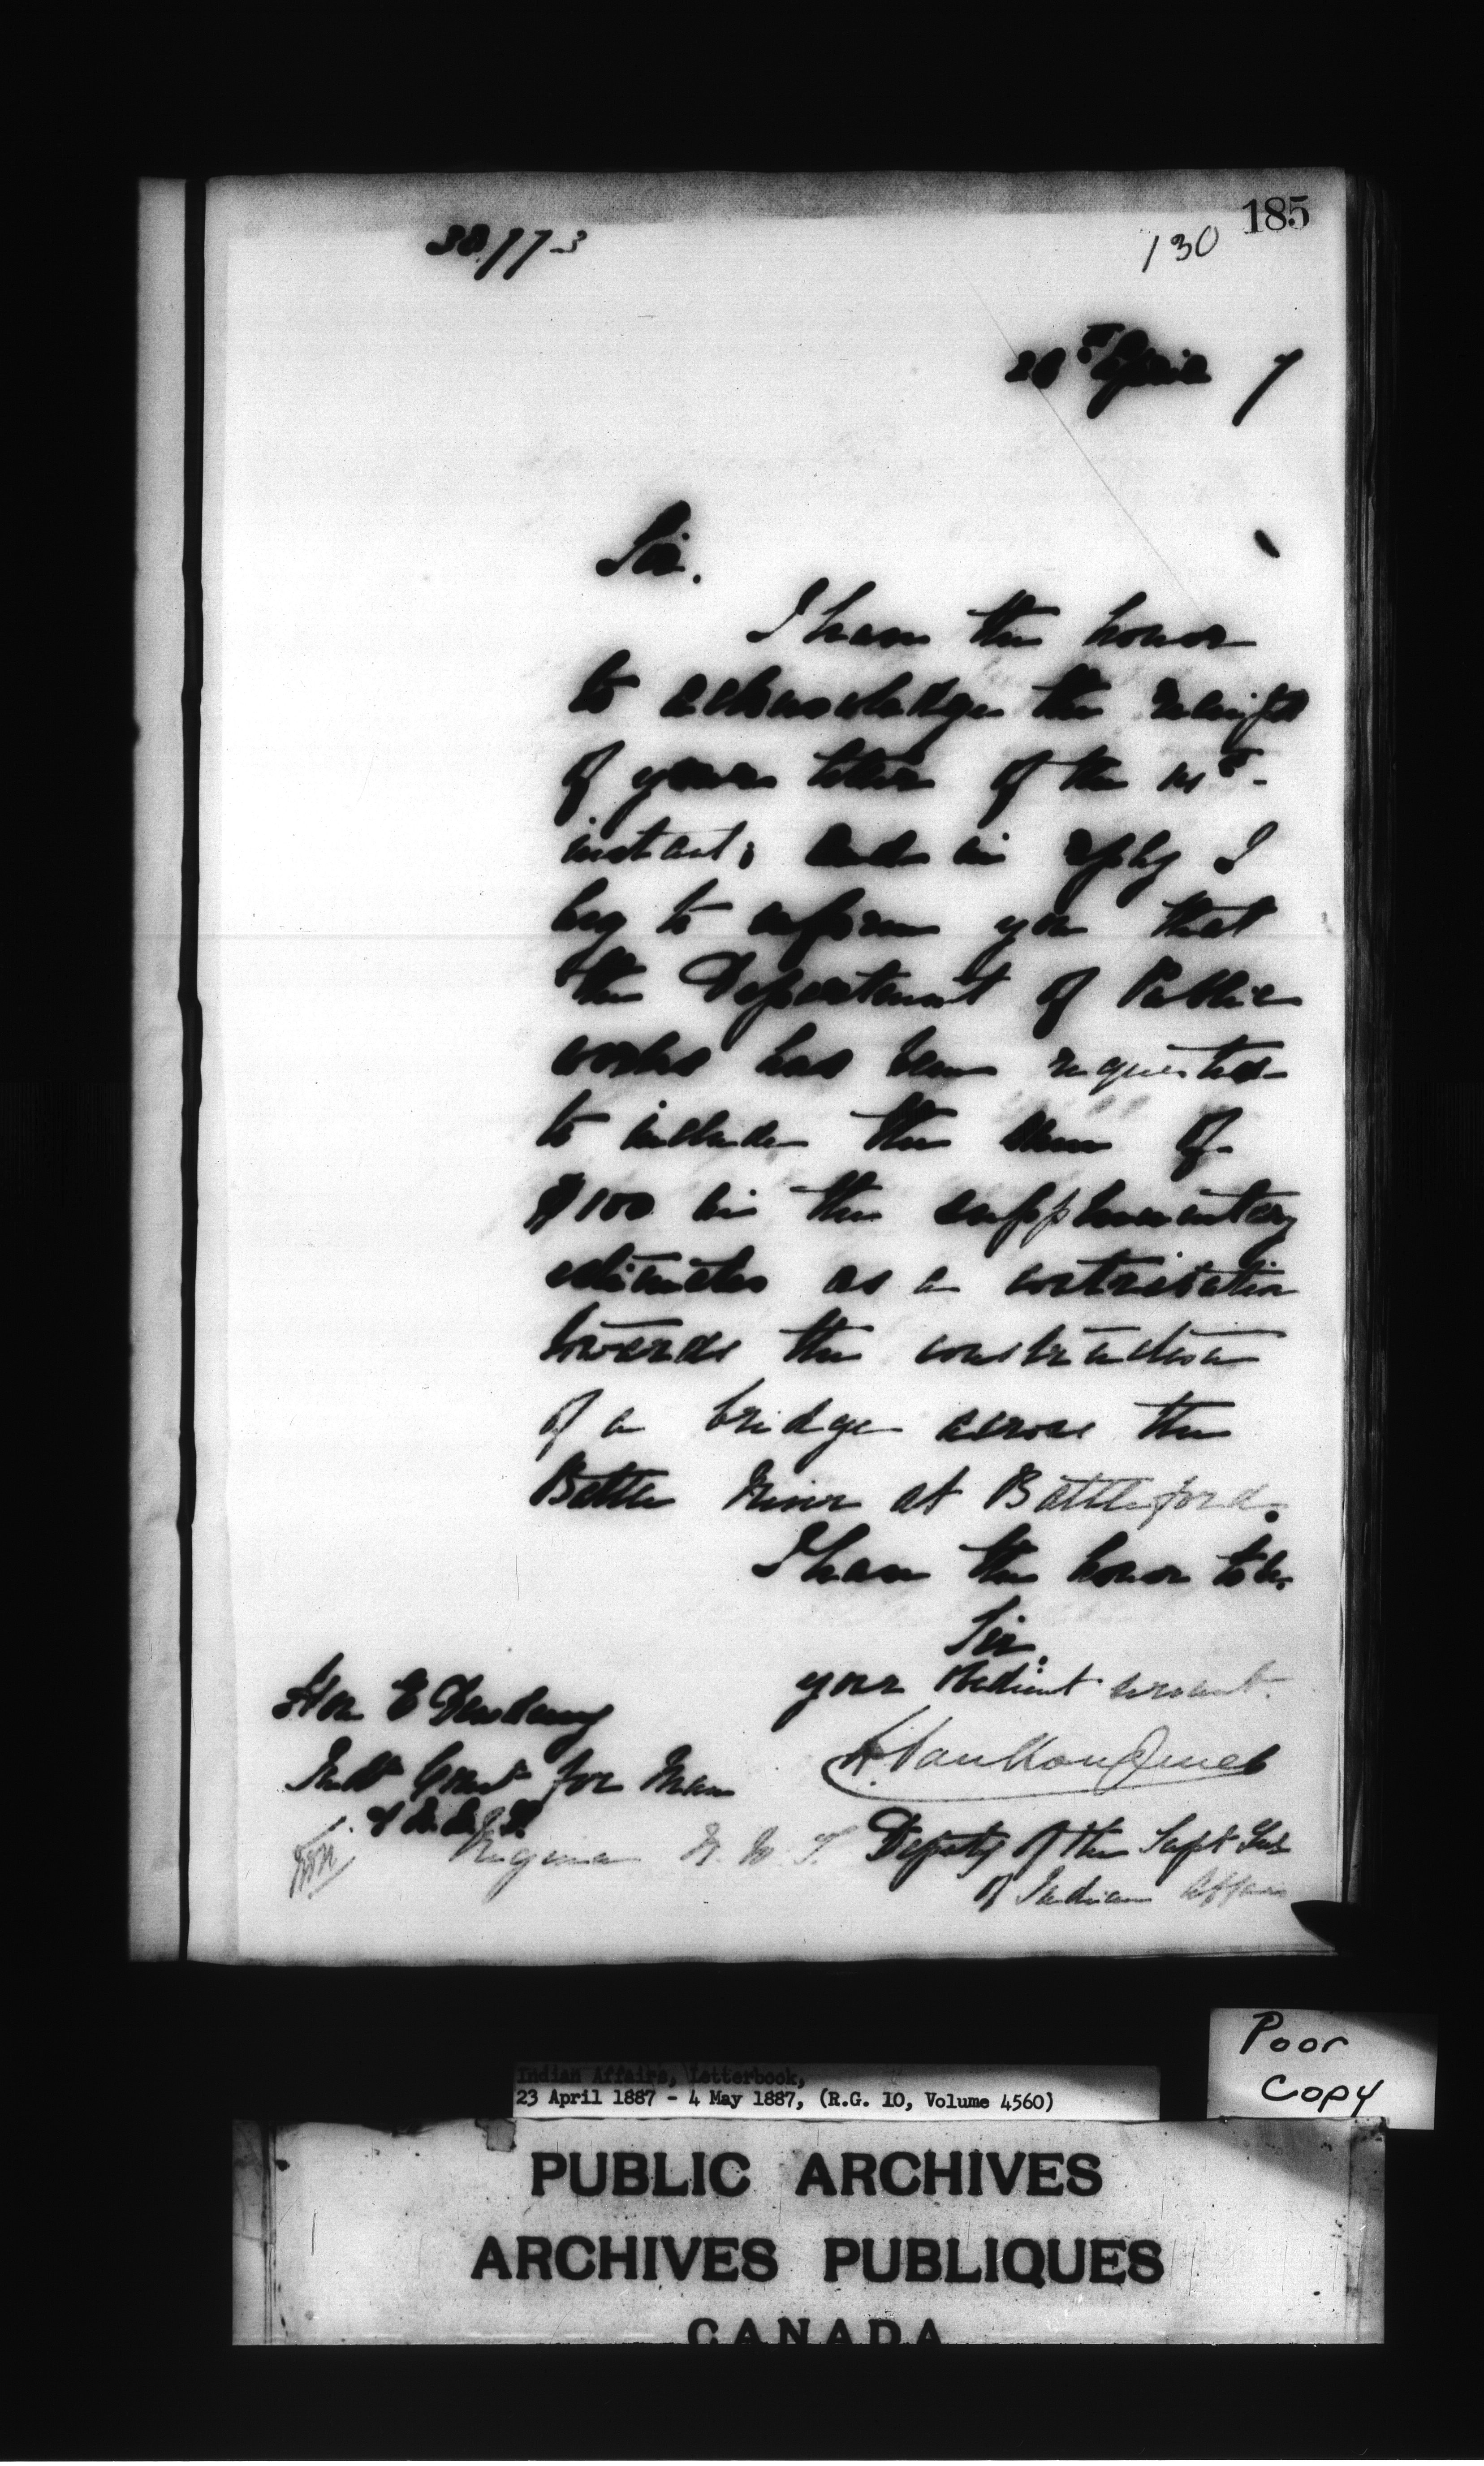 185
130
38773
28th April 7
Sir.
I have the honor
to acknowledge the receipt
of your letter of the 1st
instant; and in reply I
beg to inform you that
the Department of Public
works has been requested
to include the sum of
$100 in the supplementary
estimates as a contribution
towards the construction
of a bridge across the
Battle River at Battleford.
I have the honor to be.
Sir.
your obedient servant.
L. VanKoughnet
Deputy of the Supt Genl
of Indian Affairs
Hon E Dewdney
Indn Comr for Man
& N.W.T.
Regina N.W.T.
Poor
Copy
Indian Affairs, Letterbook,
23 April 1887 - 4 May 1887, (R.G. 10, Volume 4560)
PUBLIC ARCHIVES
ARCHIVES PUBLIQUES
CANADA